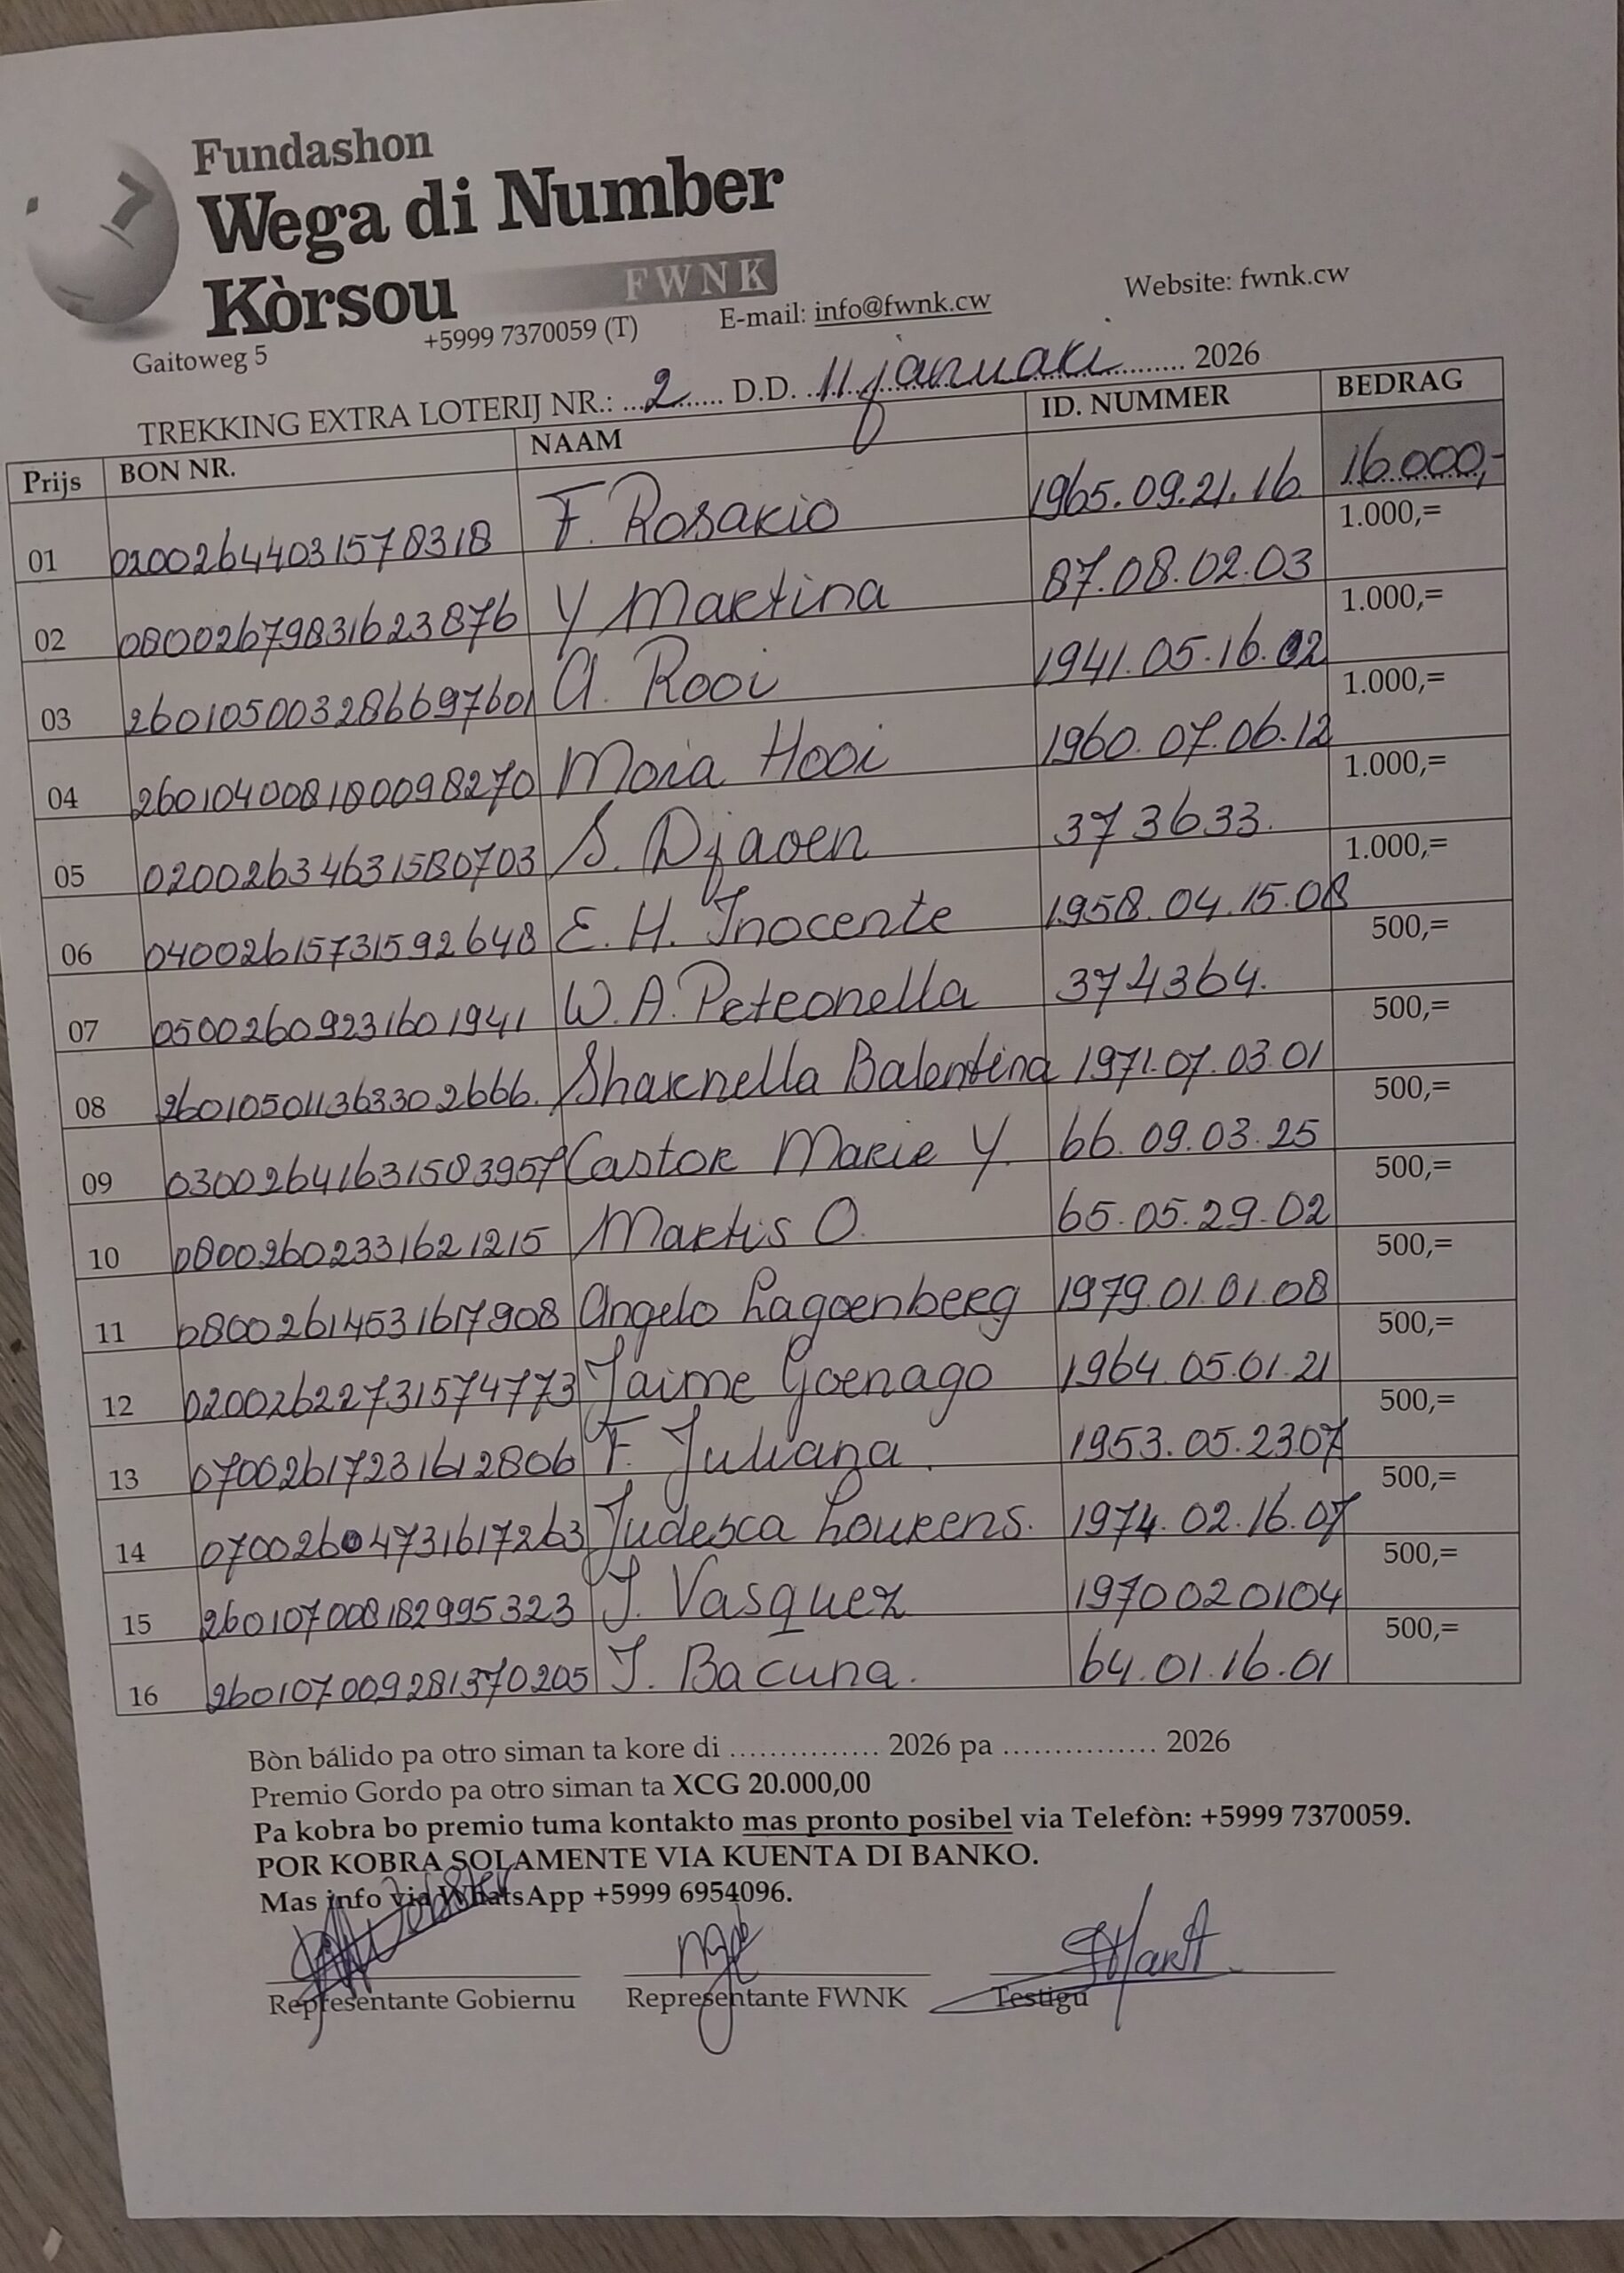 Fundashon
Wega di Number
Kòrsou FWNK
Gaitoweg 5 +5999 7370059 (T) E-mail: info@fwnk.cw Website: fwnk.cw
TREKKING EXTRA LOTERIJ NR.: ...2......... D.D. ..11 januari........... 2026
Prijs BON NR. NAAM ID. NUMMER BEDRAG
01 02002644031578318 F. Rosario 1965.09.21.16 16.000,-
02 08002679831623876 Y Martina 87.08.02.03 1.000,=
03 260105003286697601 A. Rooi 1941.05.16.02 1.000,=
04 260104008180098270 Moia Hooi 1960.07.06.12 1.000,=
05 02002634631580703 S. Djaoen 373633. 1.000,=
06 04002615731592648 E. H. Inocente 1958.04.15.08 1.000,=
07 05002609231601941 W. A. Petronella 374364. 500,=
08 260105011363302666. Sharnella Balentina 1971.07.03.01 500,=
09 03002641631583957 Castor Marie Y. 66.09.03.25 500,=
10 08002602331621215 Martis O. 65.05.29.02 500,=
11 08002614531617908 Angelo Lagoenberg 1979.01.01.08 500,=
12 02002622731574773 Jaime Goenago 1964.05.01.21 500,=
13 07002617231612806 F. Juliana. 1953.05.2307 500,=
14 07002604731617263 Judesca Lourens. 1974.02.16.07 500,=
15 260107008182995323 J. Vasquez 1970020104 500,=
16 260107009281370205 J. Bacuna. 64.01.16.01 500,=
Bòn bálido pa otro siman ta kore di ............... 2026 pa ............... 2026
Premio Gordo pa otro siman ta XCG 20.000,00
Pa kobra bo premio tuma kontakto mas pronto posibel via Telefòn: +5999 7370059.
POR KOBRA SOLAMENTE VIA KUENTA DI BANKO.
Mas info via WhatsApp +5999 6954096.
Representante Gobiernu Representante FWNK Testigu